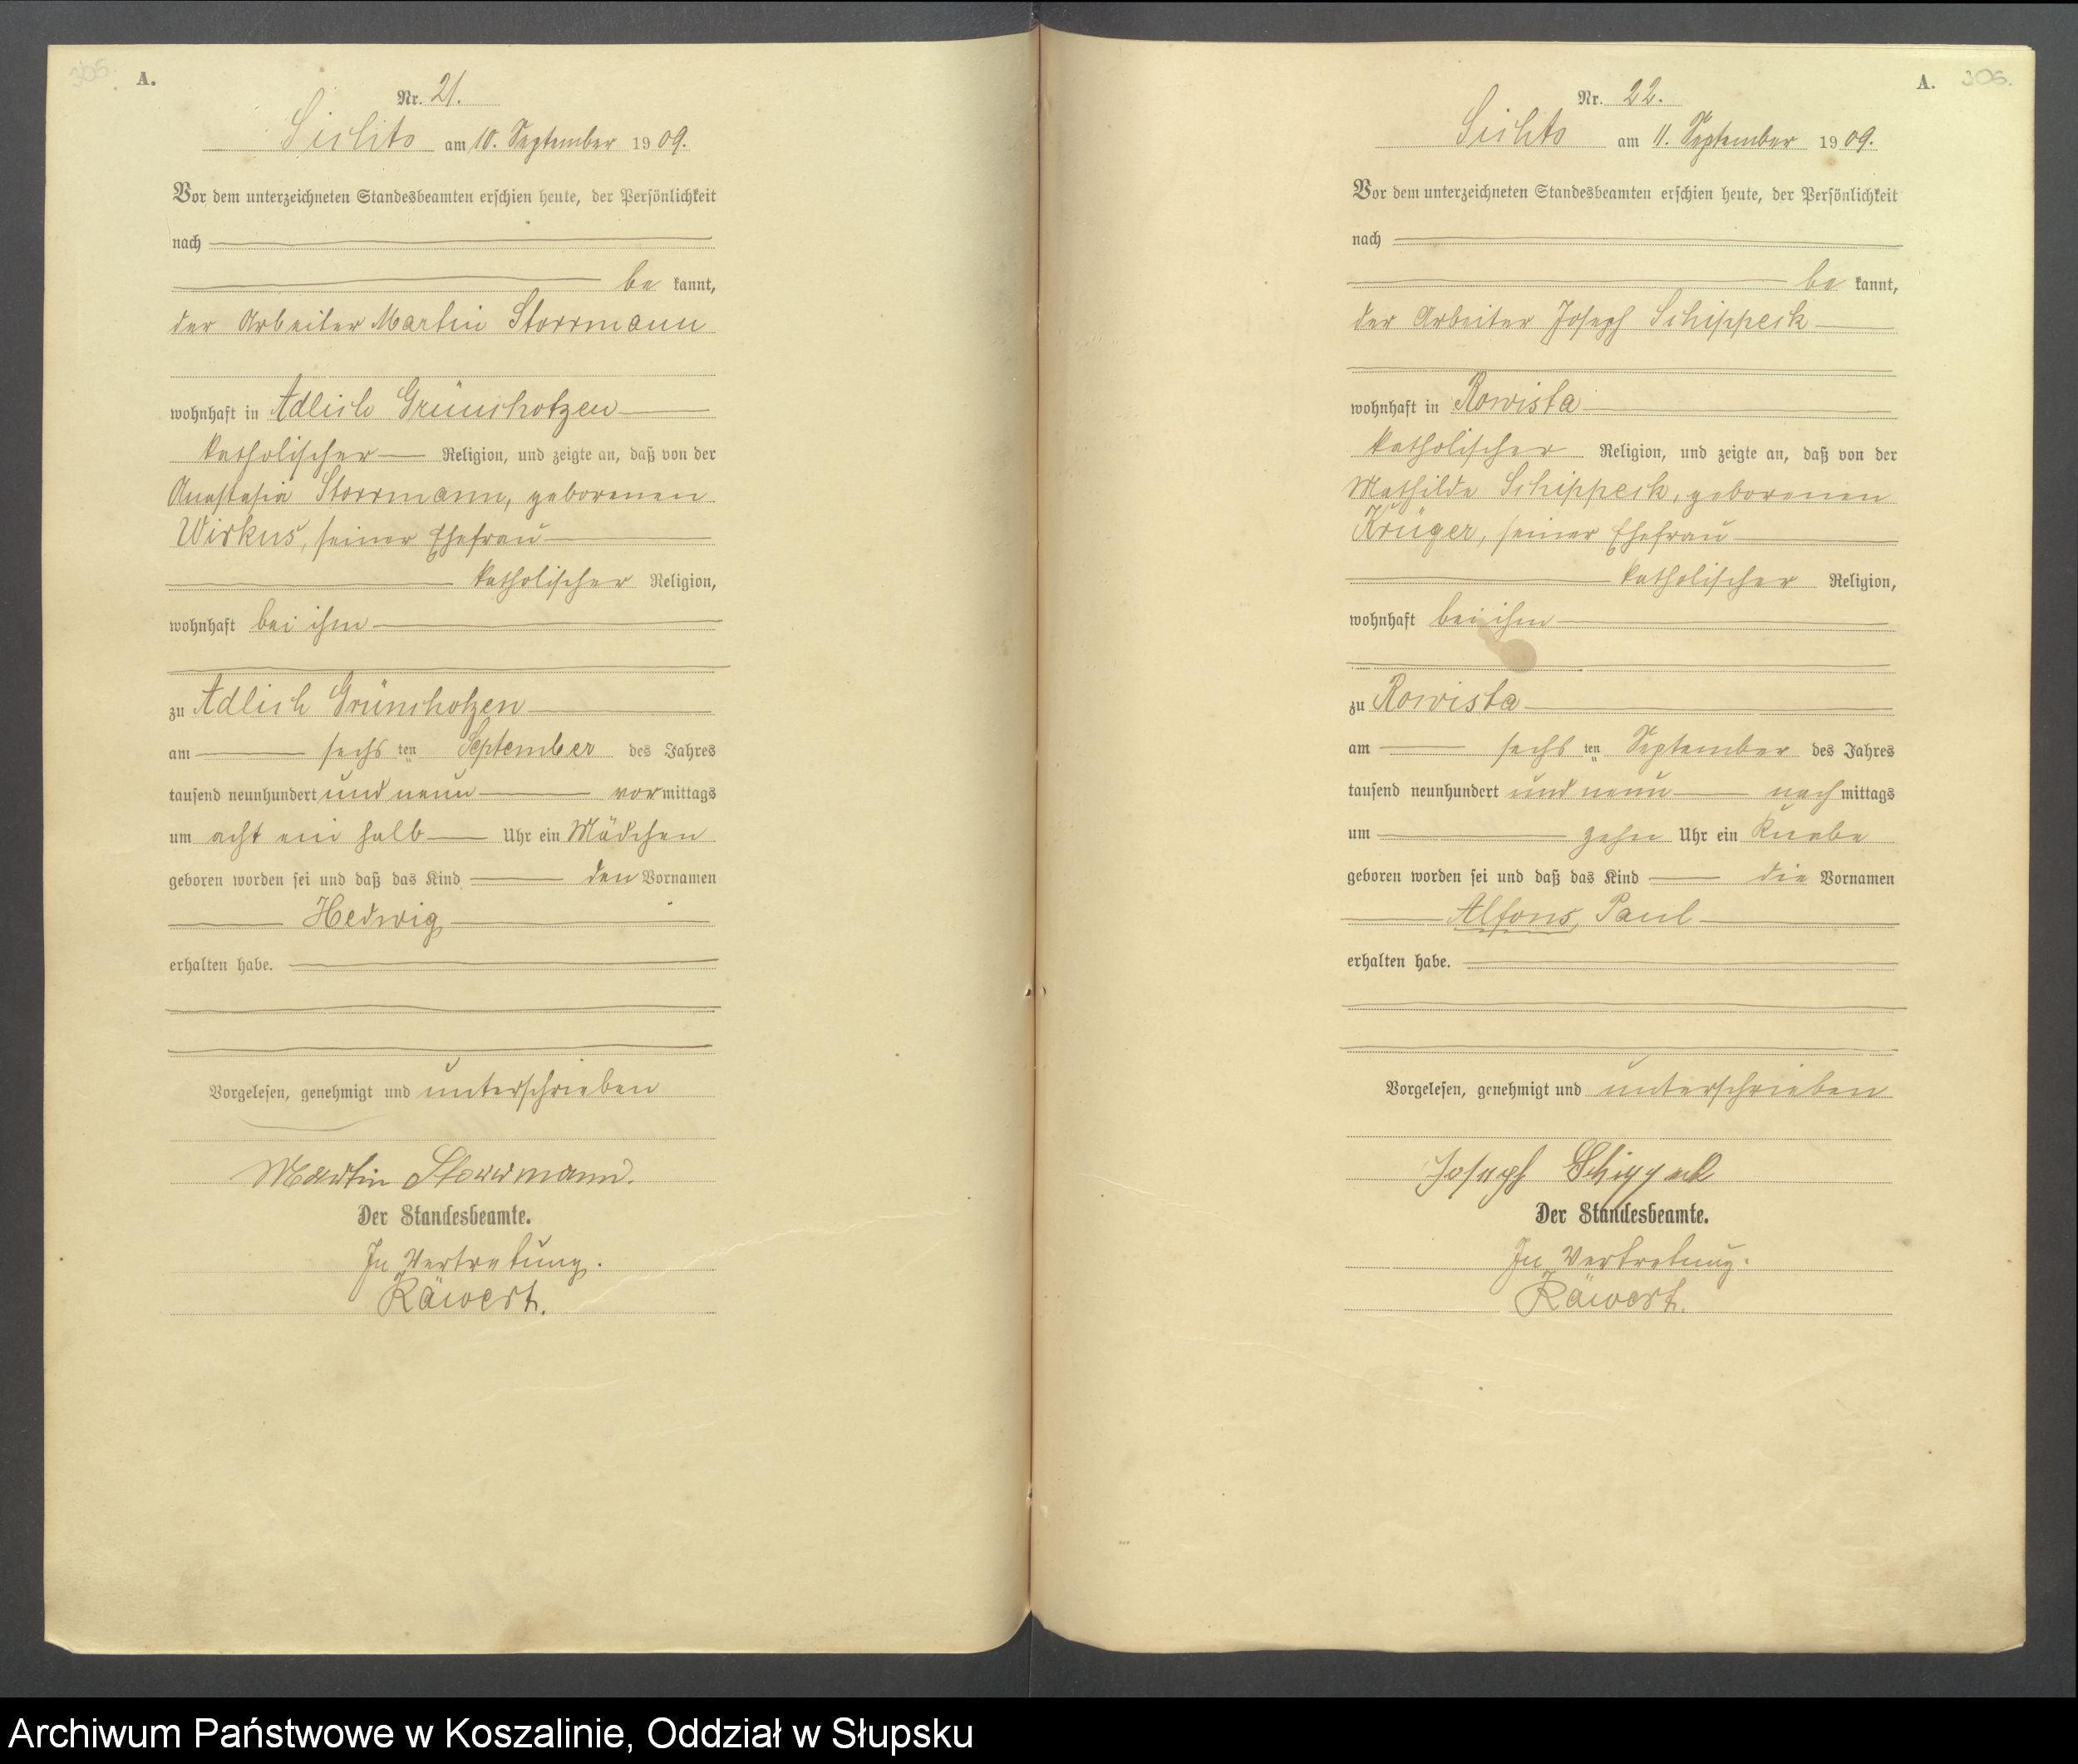 305.
A.
Nr. 21.
Sichts am 10. September 1909.
Vor dem unterzeichneten Standesbeamten erschien heute, der Persönlichkeit
nach
be kannt,
der Arbeiter Martin Storrmann
wohnhaft in Adlich Grünchotzen
katholischer Religion, und zeigte an, daß von der
Anastasia Storrmann, geborenen
Wirkus, seiner Ehefrau
katholischer Religion,
wohnhaft bei ihm
zu Adlich Grünchotzen
am sechs ten September des Jahres
tausend neunhundert und neun vormittags
um acht ein halb Uhr ein Mädchen
geboren worden sei und daß das Kind den Vornamen
Hedwig
erhalten habe.
Vorgelesen, genehmigt und unterschrieben
Martin Storrmann.
Der Standesbeamte.
In Vertretung.
Räwert.
A. 306.
Nr. 22.
Sichts am 11. September 1909.
Vor dem unterzeichneten Standesbeamten erschien heute, der Persönlichkeit
nach
be kannt,
der Arbeiter Joseph Schippeck
wohnhaft in Rowista
katholischer Religion, und zeigte an, daß von der
Mathilde Schippeck, geborenen
Krüger, seiner Ehefrau
katholischer Religion,
wohnhaft bei ihm
zu Rowista
am sechs ten September des Jahres
tausend neunhundert und neun nachmittags
um zehn Uhr ein Knabe
geboren worden sei und daß das Kind die Vornamen
Alfons, Paul
erhalten habe.
Vorgelesen, genehmigt und unterschrieben
Joseph Schippeck
Der Standesbeamte.
In Vertretung.
Räwert.
Archiwum Państwowe w Koszalinie, Oddział w Słupsku